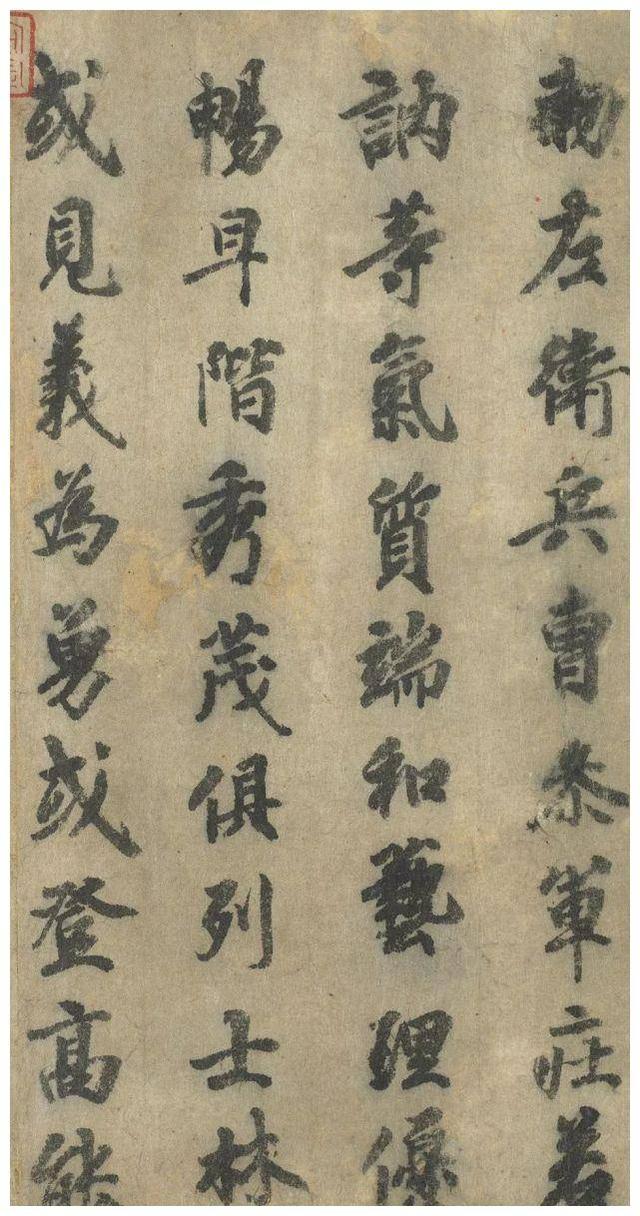 勅左衛兵曹叅軍庄若
訥等氣質端和藝理優
暢早階秀茂俱列士林
或見義為勇或登高能